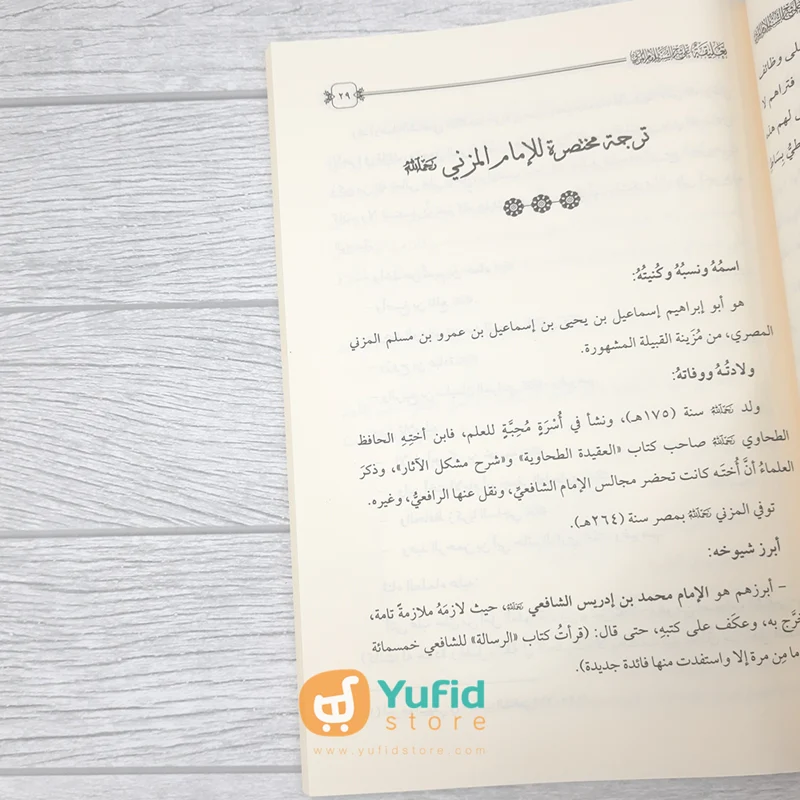 ٢٩
ترجمة مختصرة للإمام المزني رَحِمَهُ اللَّهُ
اسمُهُ ونسبُهُ وكُنيتُهُ:
هو أبو إبراهيم إسماعيل بن يحيى بن إسماعيل بن عمرو بن مسلم المزني
المصري، من مُزَينة القبيلة المشهورة.
ولادتُهُ ووفاته:
ولد رَحِمَهُ اللَّهُ سنة (١٧٥هـ)، ونشأ في أُسْرَةٍ مُحِبَّةٍ للعلم، فابن أختِهِ الحافظ
الطحاوي رَحِمَهُ اللَّهُ صاحب كتاب «العقيدة الطحاوية» و«شرح مشكل الآثار»، وذكرَ
العلماءُ أنَّ أُختَه كانت تحضر مجالس الإمام الشافعيِّ، ونقل عنها الرافعيُّ، وغيره.
توفي المزني رَحِمَهُ اللَّهُ بمصر سنة (٢٦٤هـ).
أبرز شيوخه:
– أبرزهم هو الإمام محمد بن إدريس الشافعي رَحِمَهُ اللَّهُ، حيث لازمَهُ ملازمةً تامة،
به، وعكَف على كتبهِ، حتى قال: (قرأتُ كتاب «الرسالة» للشافعي خمسمائة
ما مِن مرة إلا واستفدت منها فائدة جديدة).
Yufid
store
www.yufidstore.com